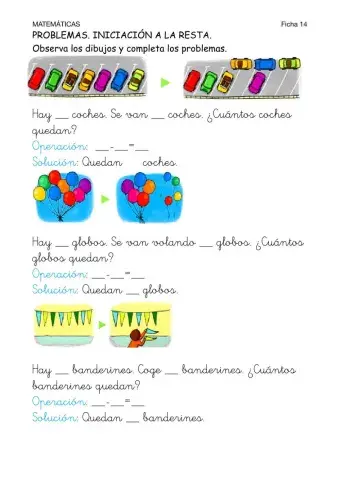 MATEMÁTICAS
Ficha 14
PROBLEMAS. INICIACIÓN A LA RESTA.
Observa los dibujos y completa los problemas.
Hay __ coches. Se van __ coches. ¿Cuántos coches
quedan?
Operación: __-__=__
Solución: Quedan coches.
Hay __ globos. Se van volando __ globos. ¿Cuántos
globos quedan?
Operación: __-__=__
Solución: Quedan __ globos.
Hay __ banderines. Coge __ banderines. ¿Cuántos
banderines quedan?
Operación: __-__=__
Solución: Quedan __ banderines.